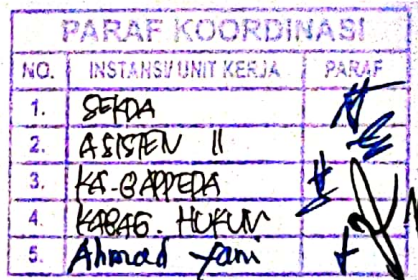 PARAF KOORDINASI
NO. INSTANSI/UNIT KERJA PARAF
1. SEKDA
2. ASISTEN II
3. KA. BAPPEDA
4. KABAG. HUKUM
5. Ahmad Yani